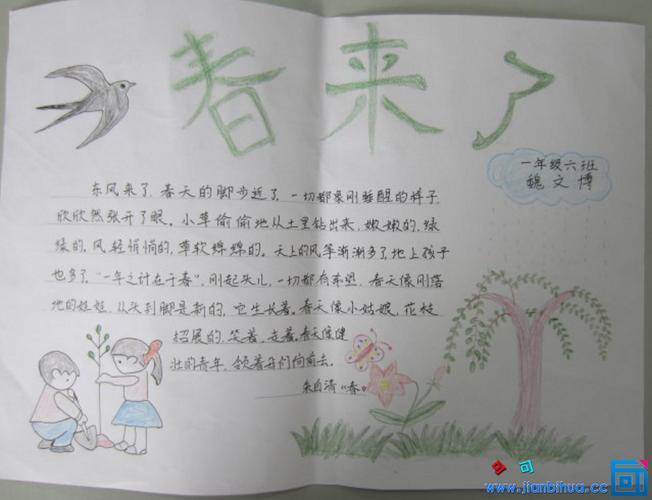 春来了
一年级六班
魏文博
东风来了,春天的脚步近了,一切都象刚睡醒的样子,
欣欣然张开了眼。小草偷偷地从土里钻出来,嫩嫩的,绿
绿的,风轻悄悄的,草软绵绵的。天上的风筝渐渐多了,地上孩子
也多了,"一年之计在于春",刚起头儿,一切都有希望。春天像刚落
地的娃娃,从头到脚是新的,它生长着。春天像小姑娘,花枝
招展的,笑着,走着。春天像健
壮的青年,领着我们向前去。
朱自清《春》
可 可
www.jianbihua.cc